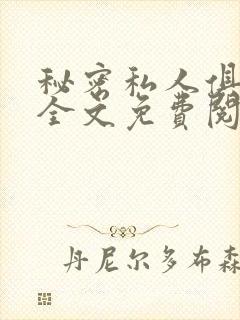 秘密私人俱
全文免费阅
丹尼尔多布森